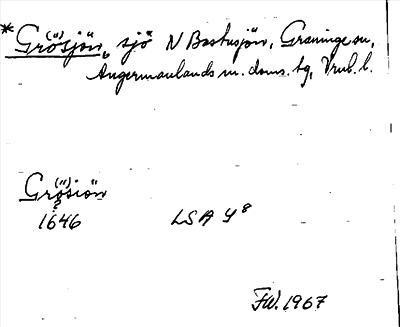 *Gro(¨)sjön, sjö N Bastusjön, Graninge sn,
Ångermanlands m. doms. tg, Vnl. l.
Gro(¨)siön
1646 LSA Y8
F.W. 1967